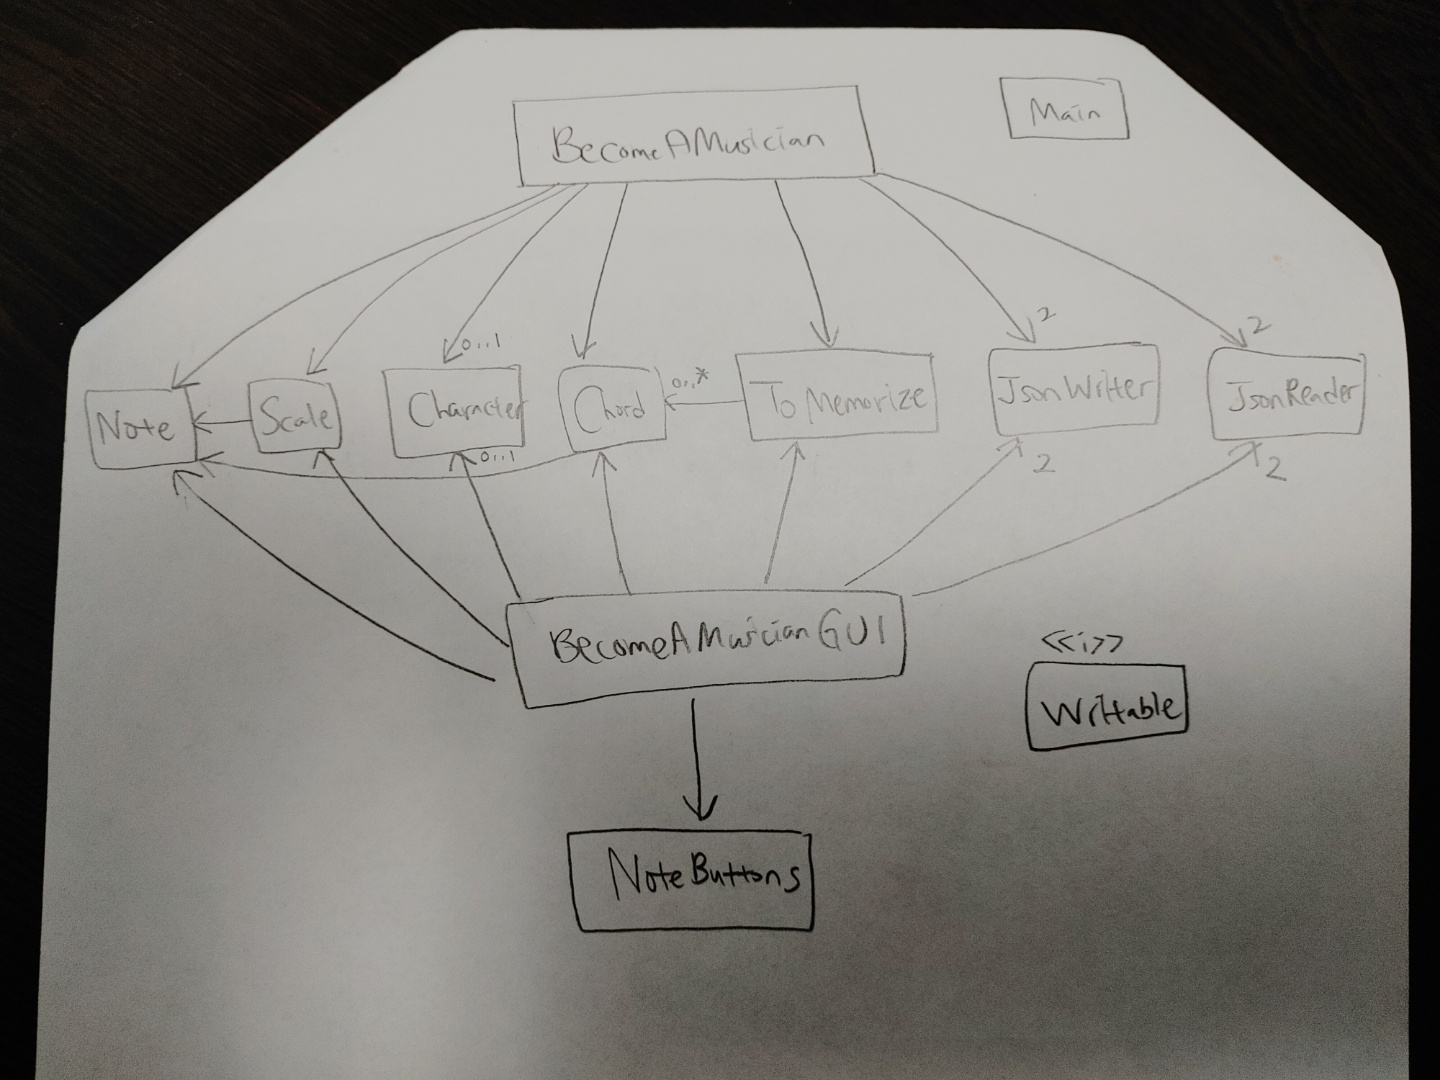 BecomeAMusician
Main
0...1
2
2
Note
Scale
Character
Chord
0...*
ToMemorize
JsonWriter
JsonReader
0...1
2
2
BecomeAMusicianGUI
<<i>>
Writable
NoteButtons